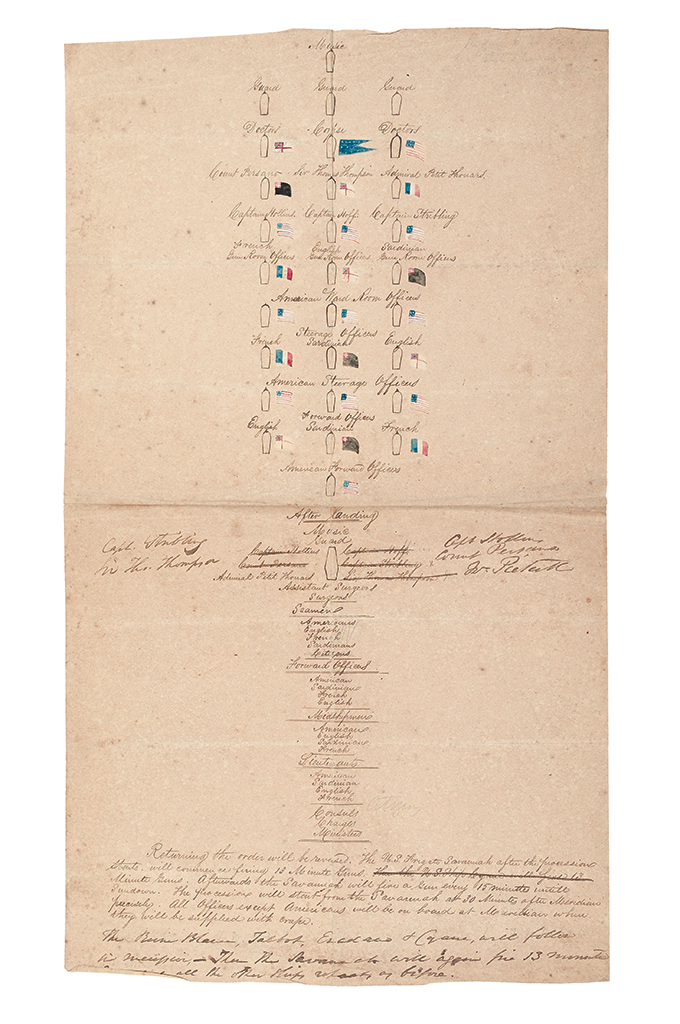 Music
Guard Guard Guard
Doctors Corpse Doctors
Count Persano Sir Thomas Thompson Admiral Petit Thouars.
Captain Hollins Captain Hoff. Captain Stribling
French English Sardinian
Gun Room Officers Gun Room Officers Gun Room Officers
American Ward Room Officers
Steerage Officers
French Sardinian English
American Steerage Officers
Forward Officers
English Sardinian French
American Forward Officers
After Landing
Music
Guard
Capt. Stribling Captain Hollins Captain Hoff Capt Hollins
Sir Thos. Thompson Count Persano Captain Stribling Count Persano
Admiral Petit Thouars Sir Thomas Thompson
Assistant Surgeons
Surgeons
Seamen
Americans
English
French
Sardinians
Citizens
Forward Officers
American
Sardinian
French
English
Midshipmen
American
English
Sardinians
French
Lieutenants
American
Sardinian
English
French
Consuls
Charges
Ministers
Returning the order will be reversed. The U.S. Frigate Savannah after the procession
starts, will commence firing 13 Minute Guns,
Minute Guns. Afterwards the Savannah will fire a Gun every 15 minutes untill
Sundown. The procession will start from the Savannah at 30 Minutes after Meridian
precisely. All Officers except Americans will be on board at Meridian when
they will be supplied with crape.
The Talbot, & Cyane, will follow
in succession – Then the Savannah will again fire 13 minute
all the other ships as before.